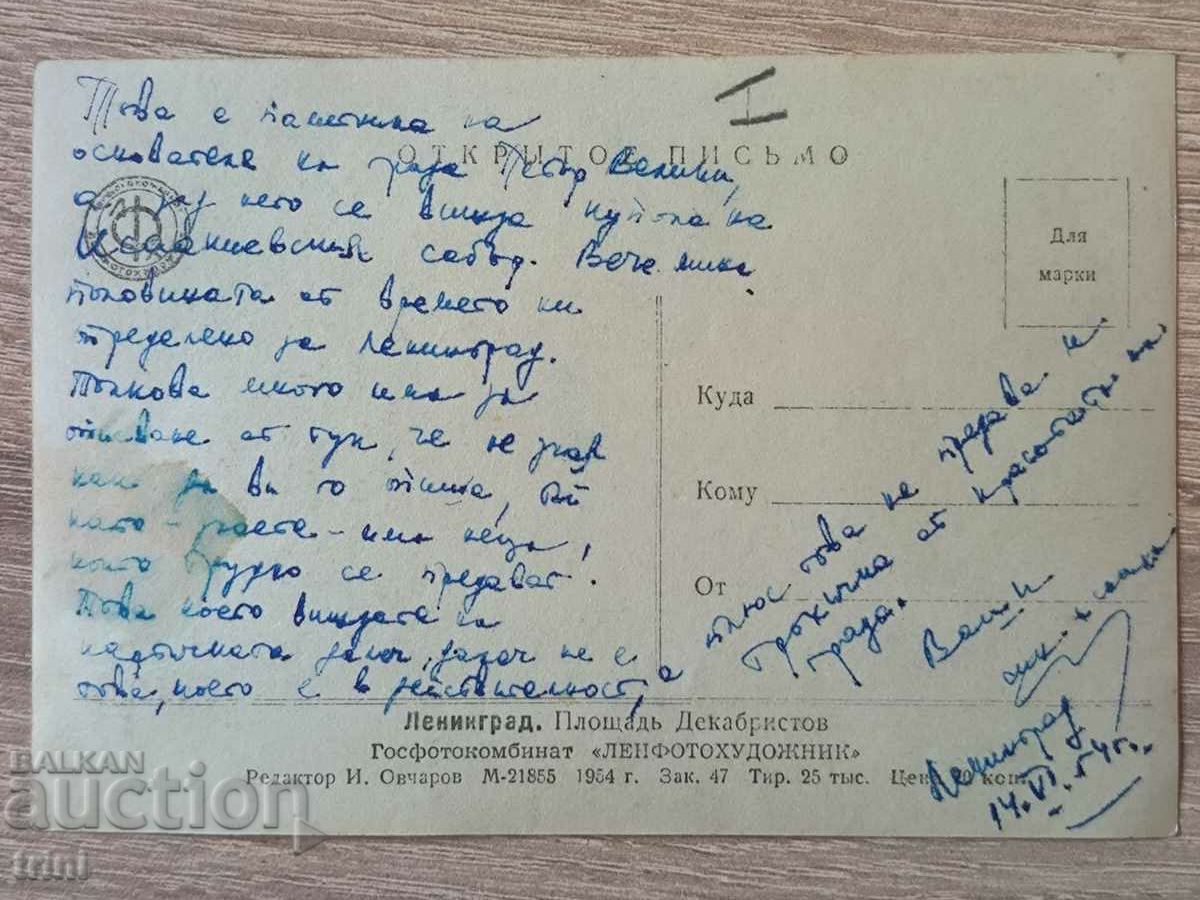 I
Това е паметника на
ОТКРЫТОЕ ПИСЬМО
основателя на града Петър Велики,
а зад него се вижда купола на
Исаакиевския събор. Вече мина
половината от времето ни
определено за Ленинград.
Толкова много има за
описване от тук, че не зная
как да ви го опиша, тъй
като - знаете - има неща,
които трудно се предават.
Това което виждате на
картичката далеч, далеч не е
това, което е в действителност, а
плюс това не предава и
трохичка от красотата на
града.
Ваши
Ленинград
14.VI.54г.
Для
марки
Куда
Кому
От
Ленинград. Площадь Декабристов
Госфотокомбинат «ЛЕНФОТОХУДОЖНИК»
Редактор И. Овчаров М-21855 1954 г. Зак. 47 Тир. 25 тыс. коп.
BALKAN
auction
trini